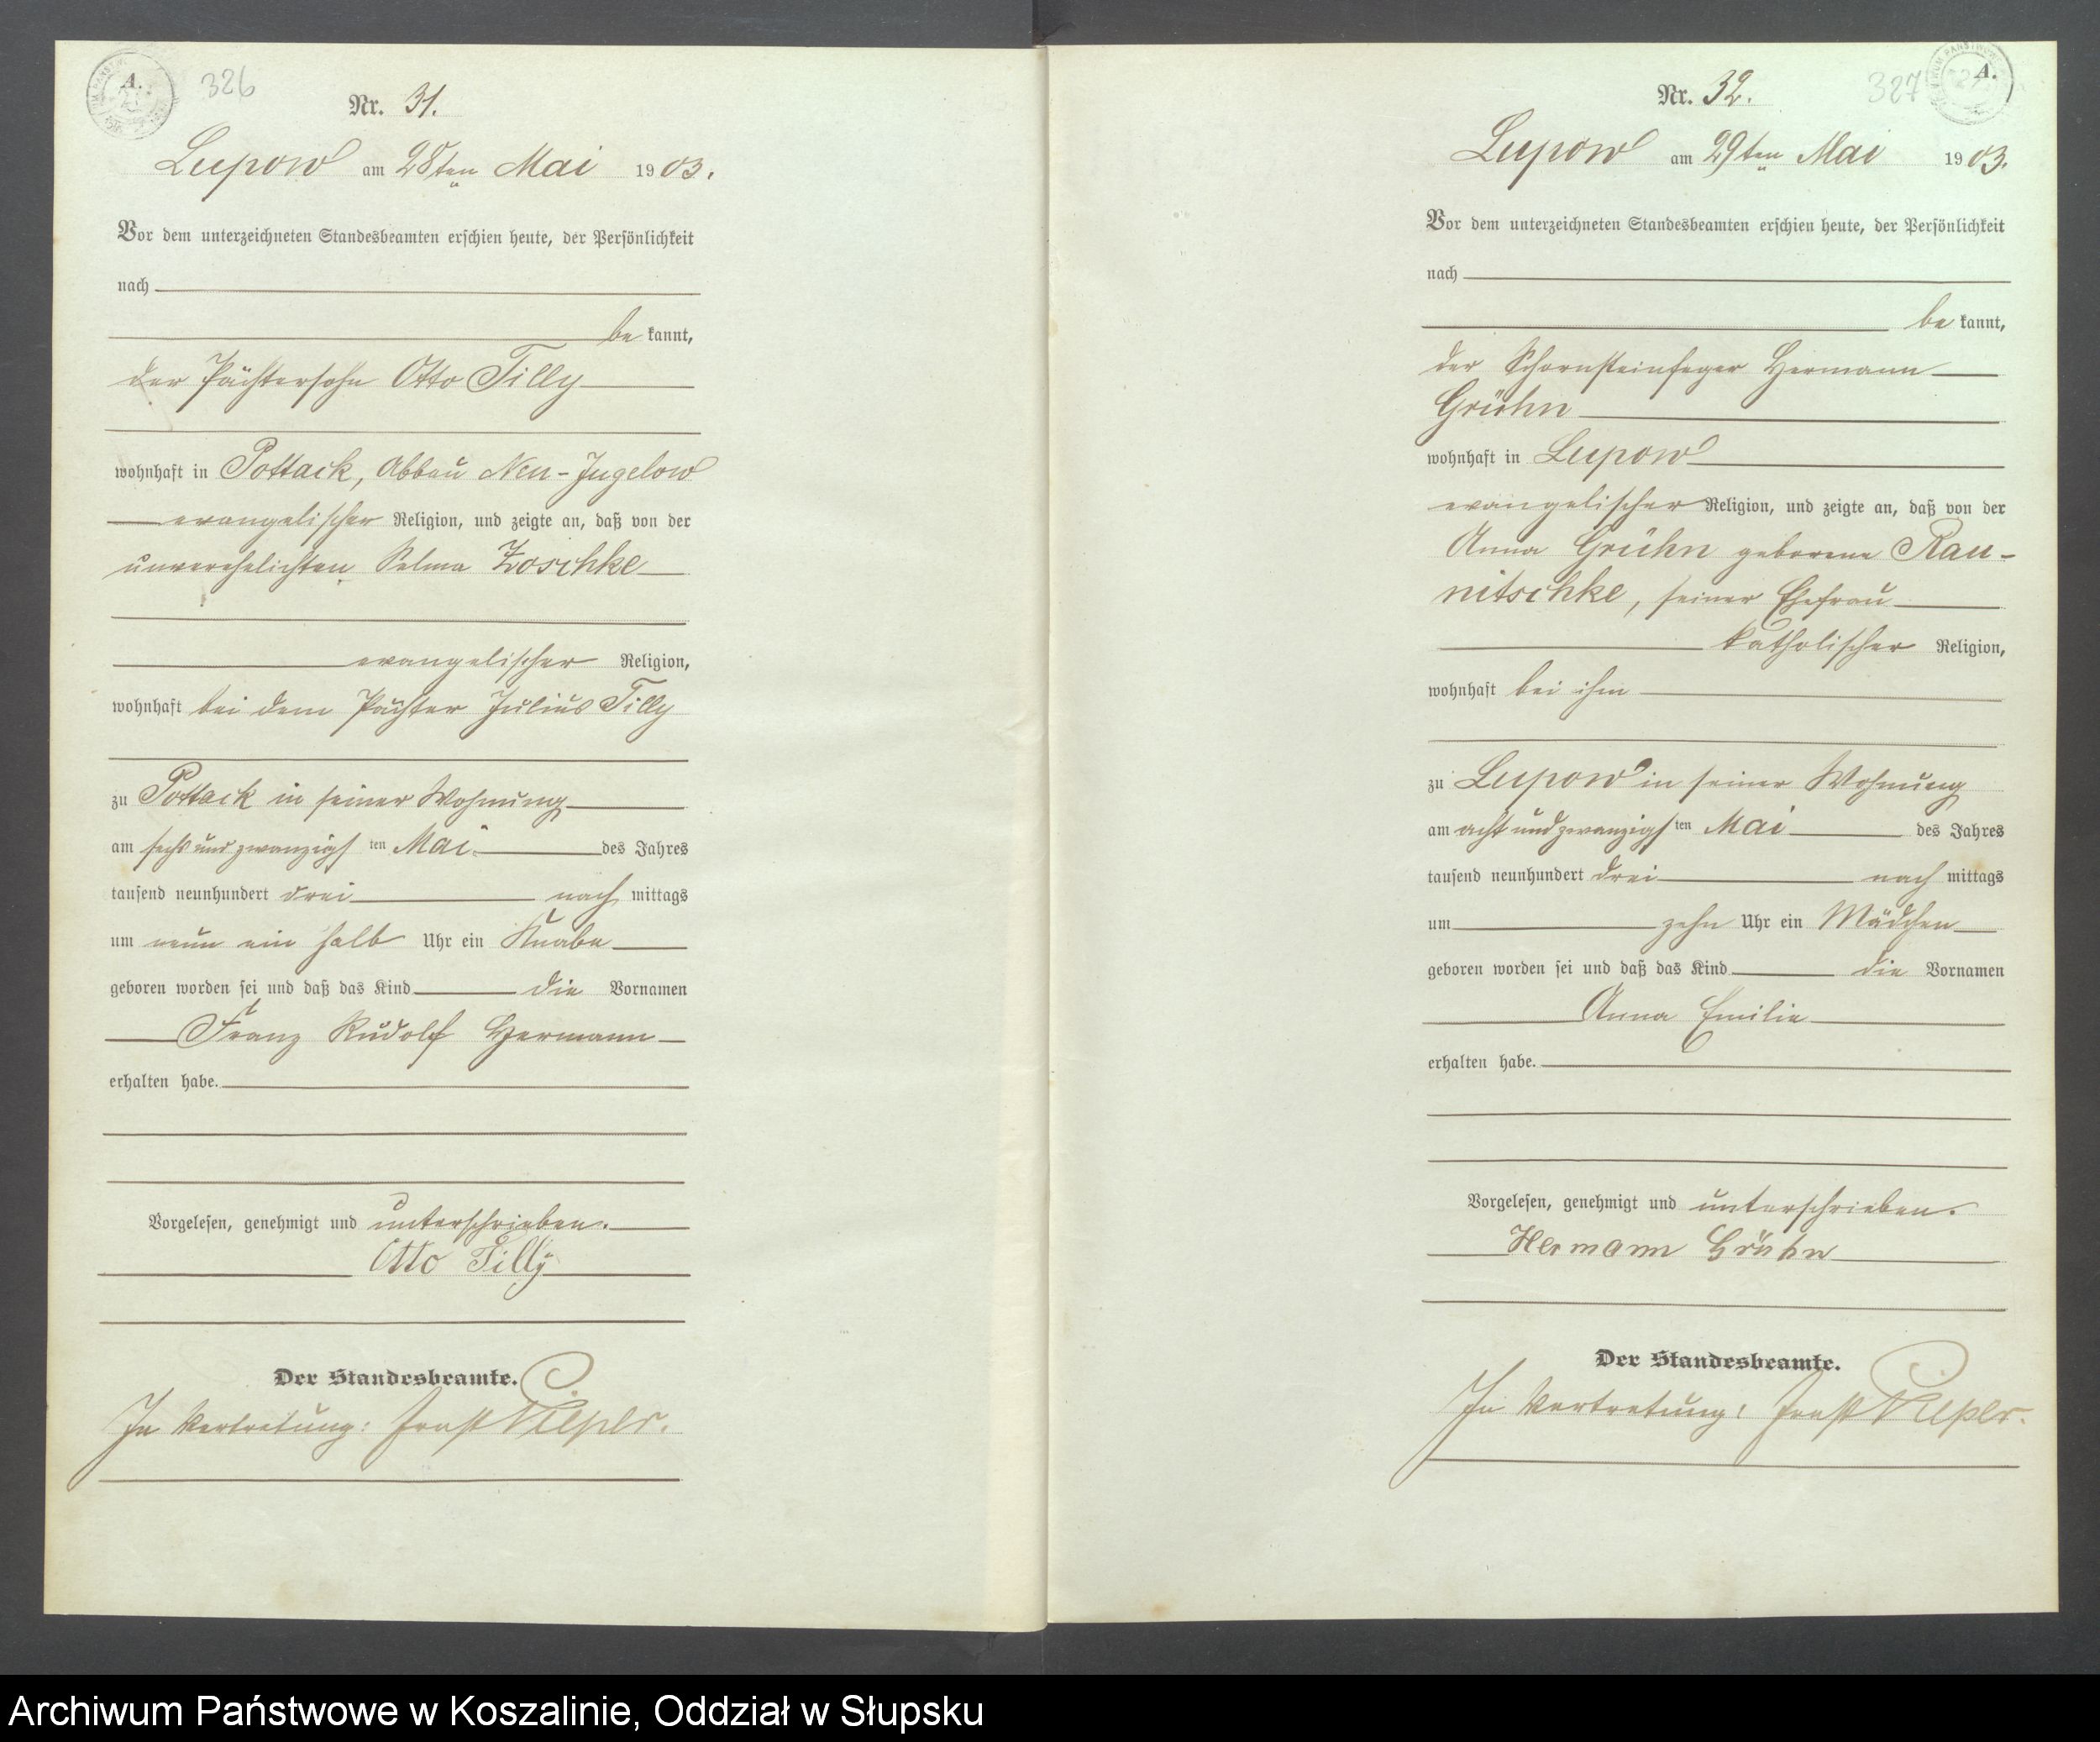 A.
326
Nr. 31.
Lupow am 28ten Mai 1903.
Vor dem unterzeichneten Standesbeamten erschien heute, der Persönlichkeit
nach
be kannt,
der Pächtersohn Otto Tilly
wohnhaft in Pottack, Abbau Neu-Jugelow
evangelischer Religion, und zeigte an, daß von der
unverehelichten Selma Zoschke
evangelischer Religion,
wohnhaft bei dem Pächter Julius Tilly
zu Pottack in seiner Wohnung
am sechsundzwanzigsten Mai des Jahres
tausend neunhundert drei nach mittags
um neun ein halb Uhr ein Knabe
geboren worden sei und daß das Kind die Vornamen
Franz Rudolf Hermann
erhalten habe.
Vorgelesen, genehmigt und unterschrieben.
Otto Tilly
Der Standesbeamte.
In Vertretung: Ernst Pieper.
A.
327
Nr. 32.
Lupow am 29ten Mai 1903.
Vor dem unterzeichneten Standesbeamten erschien heute, der Persönlichkeit
nach
be kannt,
der Schornsteinfeger Hermann
Grühn
wohnhaft in Lupow
evangelischer Religion, und zeigte an, daß von der
Anna Grühn geborene Rau-
nitschke, seiner Ehefrau
katholischer Religion,
wohnhaft bei ihm
zu Lupow in seiner Wohnung
am achtundzwanzigsten Mai des Jahres
tausend neunhundert drei nach mittags
um zehn Uhr ein Mädchen
geboren worden sei und daß das Kind die Vornamen
Anna Emilie
erhalten habe.
Vorgelesen, genehmigt und unterschrieben.
Hermann Grühn
Der Standesbeamte.
In Vertretung: Ernst Pieper.
Archiwum Państwowe w Koszalinie, Oddział w Słupsku